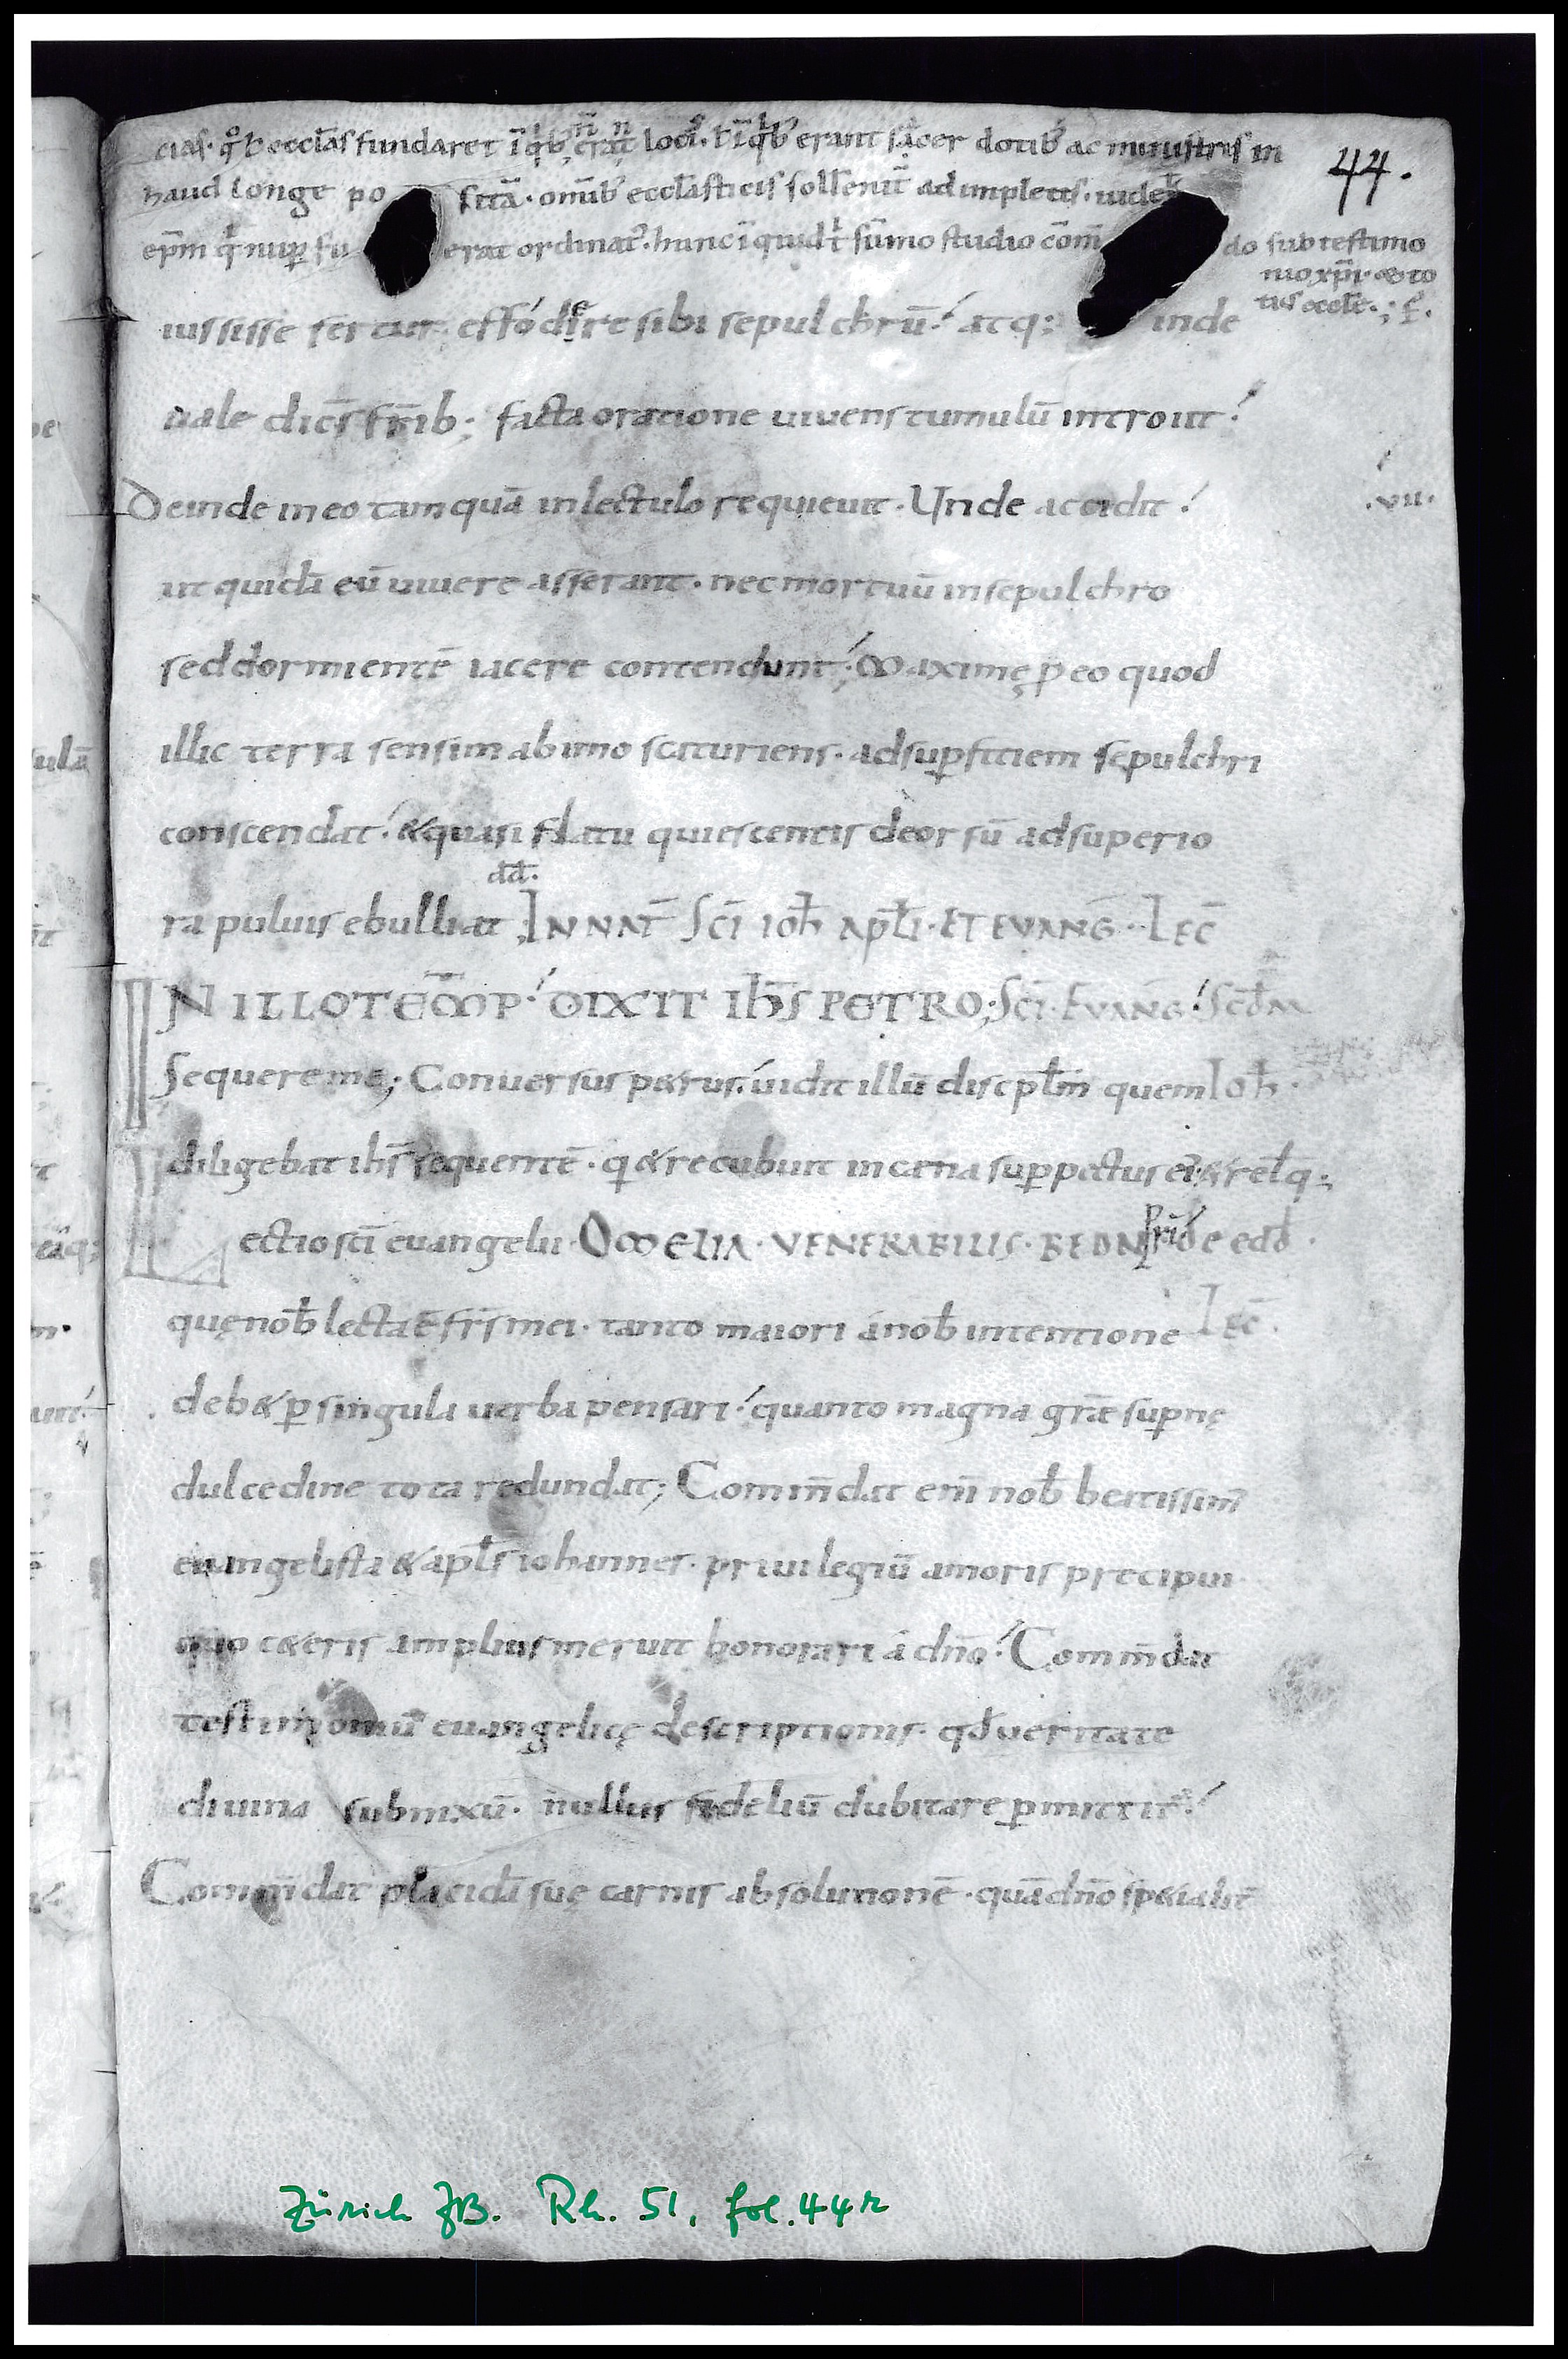 cias. q̊ƀ eccl̄as fundaret ī qb; erat loci. ƀ īqb; erant sacer dotib; ac ministris in
haud longe po sitā. omīb; eccl̄asticis sollēnit̄ ad impletis. uide
ep̄m q nuꝑ fu erat ordinat᷒. hunc īquid t̄ sūmo studio com̄ do sub testimo
nio xp̄i. & to
tius eccle.; f.
44.
iussisse fertur effodere sibi sepulchrū. atq; inde
uale dicēs fr̄ib; facta oratione uiuens tumulū introiit.
Deinde in eo tam quā in lectulo requieuit. Unde accidit. .VII.
ut quidā eū uiuere asserant. nec mortuū in sepulchro
sed dormientē iacere contendunt. Maximę ꝑ eo quod
illic terra sensim ab imo scaturiens. ad suꝑficiem sepulchri
conscendat. & quasi flatu quiescentis deorsū ad superio
dd̄.
ra puluis ebulliat; IN NAT̄ SC̄I IOH̄ APL̄I. ET EVANḠ. LEC̄
IN ILLO TEM̄P. DIXIT IH̄S PETRO; SC̄I. EVANḠ. SCD̄M
Sequere me; Conuersus p&rus. uidit illū discipl̄m quem IOH̄.
diligebat ih̄s sequentē. q & recubuit in cena suꝑ pectus ei᷒ & relq̄;
Lectio sc̄i euangelii. OMELIA. VENERABILIS. BEDAE PRI de eod̄.
quę nob̄ lecta ē fr̄s mei. tanto maiori á nob̄ intentione LEC̄.
deb& ꝑ singula uerba pensari. quanto magna grae suꝑnę
dulcedine tota redundat; Comm̄dat eni nob̄ beatissim᷒
euangelista & apl̄s iohannes. priuilegiū amoris precipui.
quo c&eris amplius meruit honorari á dn̄o. Comm̄dat
testimoniū euangelicę descriptionis. qd̄ ueritate
diuina subnixū. nullus fidelium dubitare ꝑmittit᷒.
Comm̄dat placidā suę carnis absolutionē. quā dn̄o sp&ialit̄
Zürich ZB. Rh. 51, fol. 44r